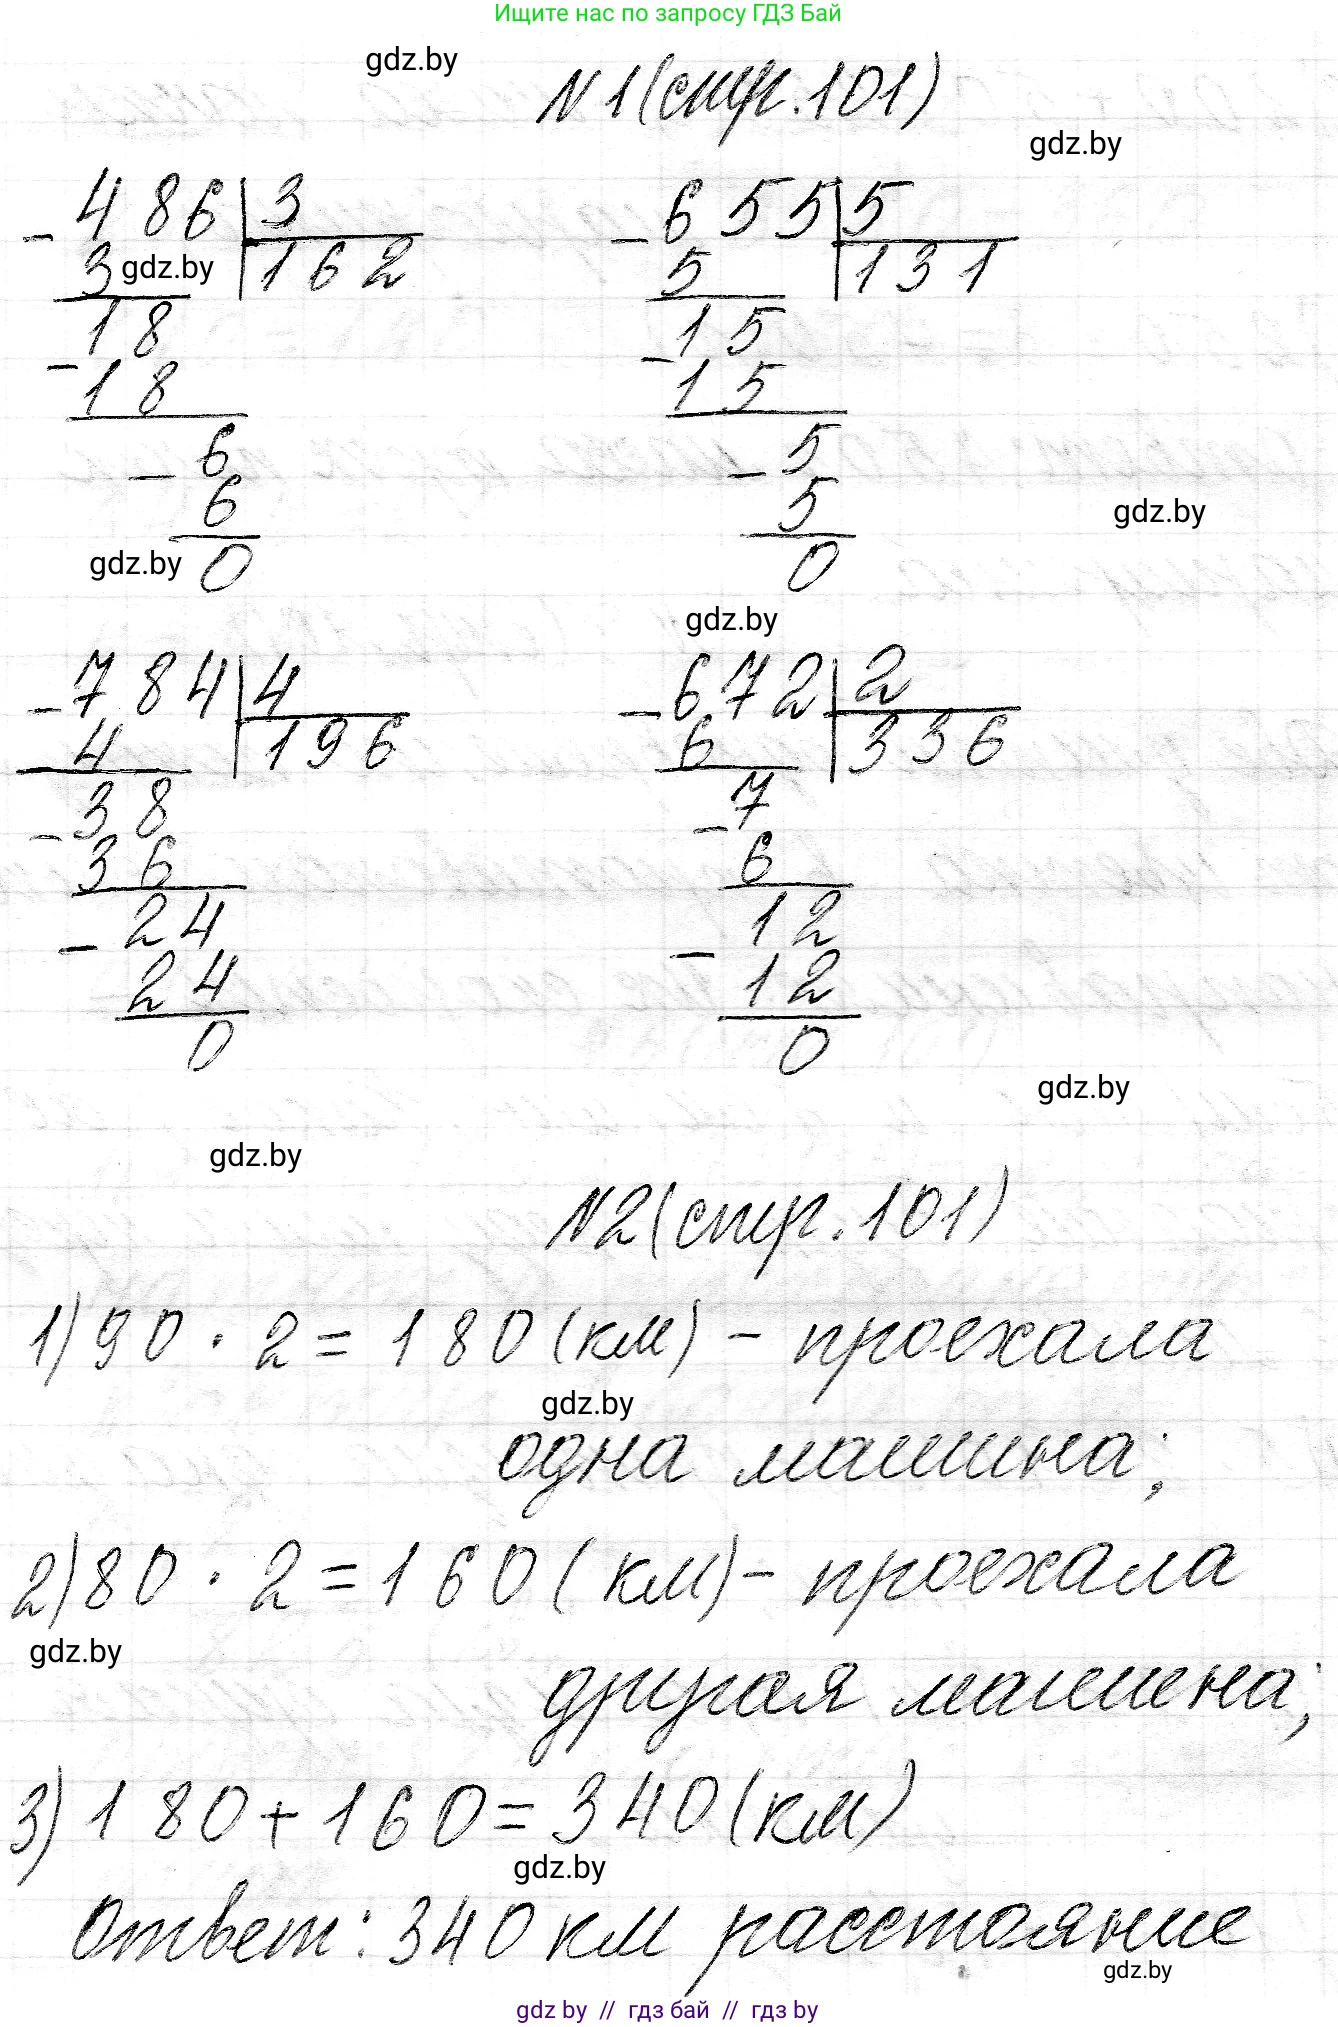 Ищите нас по запросу ГДЗ Бай
gdz.by
№1 (стр. 101)
gdz.by
- 486 | 3
3 gdz.by | 162
18
- 18
- 6
6
gdz.by 0
- 655 | 5
5 | 131
15
- 15
- 5
5
gdz.by
0
gdz.by
- 784 | 4
4 | 196
- 38
36
- 24
24
0
- 672 | 2
6 | 336
- 7
6
- 12
12
0
gdz.by
gdz.by
№2 (стр. 101)
1) 90 · 2 = 180 (км) - проехала
gdz.by
одна машина;
2) 80 · 2 = 160 (км) - проехала
gdz.by
другая машина;
3) 180 + 160 = 340 (км)
gdz.by
Ответ: 340 км расстояние
gdz.by
gdz by // гдз бай // гдз by